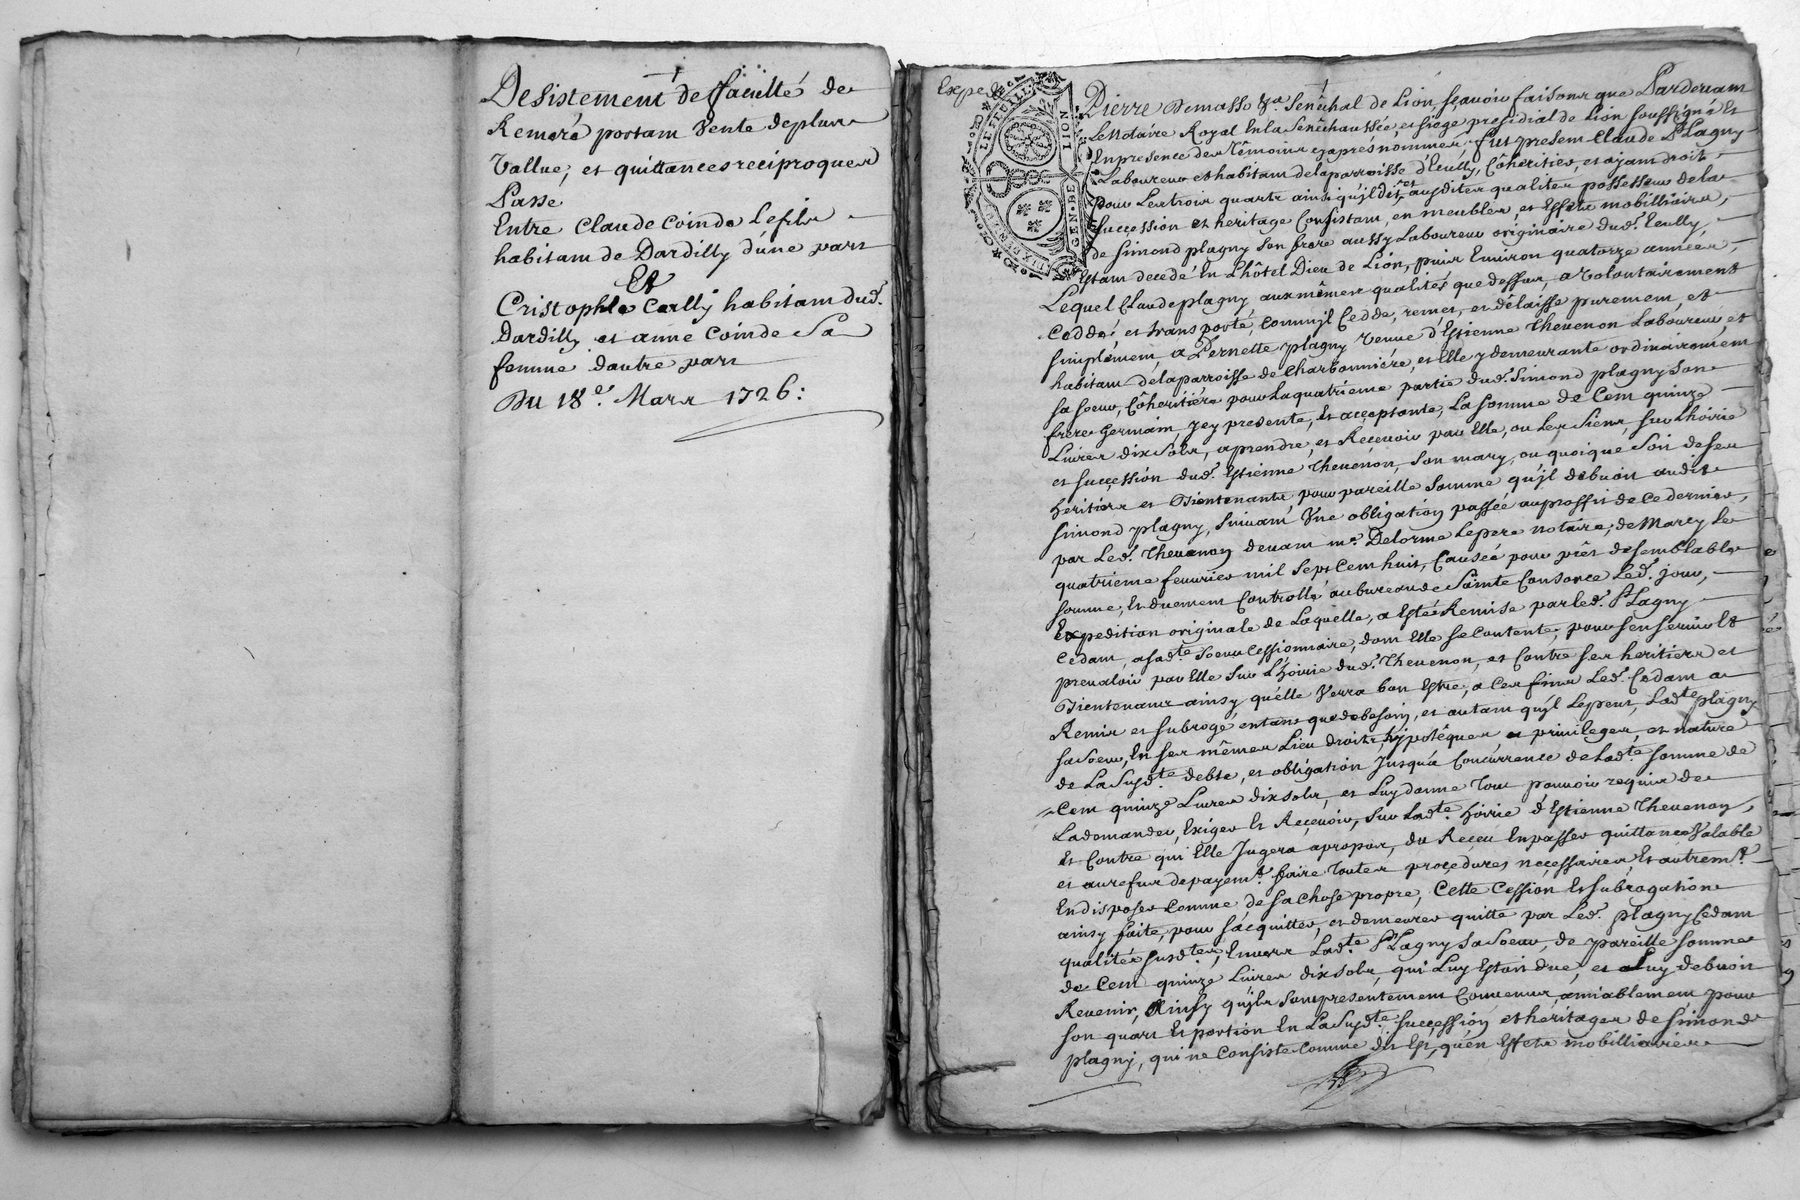 Desistement de faculté de
Remeré portam Vente deplus
Vallue, et quittances reciproques
Passé
Entre Claude Coinde Lefils
habitam de Dardilly d'une part
Et
Cristophle Cailly habitam dud.
Dardilly et anne Coinde Sa
femme dautre part
Du 18e. Mars 1726:
Exped
LEFEUILLE
LION
GEN·DE
Pierre Demasso Sr. Senêchal de Lion, sçavoir faisons que Pardevant
Le Notaire Royal En la Senêchaussée et siège presidial de Lion soussigné Et
En presence des Témoins cyapres nommés, fut present Claude Plagny
Laboureur et habitam dela parroisse d'Eculy, Côheritier, et ayam droit
pour Les trois quarts ainsi qu'il dit, et ausdites qualites possesseur dela
Succession et heritage Consistam, en meubles, et Effets mobilliaires,
de Simond plagny son frere aussy Laboureur originaire dud. Eculy,
Estam decedé En L'hôtel Dieu de Lion, puis Environ quatorze années,
Lequel Claude plagny aux mêmes qualités que dessus, a Volontairement
Ceddé, et transporté, Comm'il Cedde, remet, et délaisse purement, et
simplement, a Pernette plagny Veuve d'Estienne Thevenon Laboureur, et
habitam dela parroisse de Charbonniére, et Elle y demeurante ordinairement
sa soeur, Côheritiére pour La quatriéme partie dud. Simond plagny son
frere Germain, Icy presente, Et acceptante, La somme de Cent quinze
Livres dix sols, a prendre, et Recevoir par Elle, ou Les Siens, sur L'hoirie
et succession dud. Estienne Thevenon, son mary, ou quoique Soit de ses
heritiers et Bientenants, pour pareille Somme qu'il debvoit audit
Simond plagny, Suivant Une obligation passée au proffit de ce dernier,
par Led. Thevenon devam me. Delorme Lepere notaire, de Marcy Le
quatrieme fevrier mil Sept Cent huit, Causée pour prêt de semblable
somme, Et duement Controllé au bureau de Sainte Consorce Led. jour,
Expedition originale de Laquelle, a Esté Remise par Led. Plagny
Cedam, a sadte. Soeur Cessionnaire, dont Elle se Contente, pour s'en servir Et
prevaloir par Elle sur L'hoirie dud. Thevenon, et Contre ses heritiers et
Bientenans ainsy qu'elle Verra bon Estre, a Ces fins Led. Cedam a
Remis et subrogé entant que de besoin, et autant qu'il Le peut, Ladte plagny
sa Soeur, En ses mêmes Lieu droits, hypotêques et privileges, et nature
de La Susdte debte, et obligation Jusqu'a Concurrence de Ladte. somme de
Cent quinze Livres dix sols, et Luy donne Tout pouvoir requis de
La demander, Exiger Et Recevoir, sur Ladte. hoirie d'Estienne Thevenon,
Et Contre qui Elle Jugera a propos, du Receu En passer quittance Valable
et au refus de payemt. faire Toutes procedures necessaires Et autremt.
En disposer Comme de sa chose propre, Cette Cession Et subrogation
ainsy faite, pour s'acquitter, et demeurer quitte par Led. plagny Cedam
qualités susdtes, Envers Ladte. Plagny sa Soeur, de pareille somme
de Cent quinze Livres dix sols, qui Luy Estoit due, et Luy debvoit
Revenir, Ainsy qu'ils sont presentement Convenus amiablement pour
son quart Et portion En La Susdte. succession et heritages de Simond
plagny, qui ne Consiste Comme dit Est, qu'en Effets mobilliaires